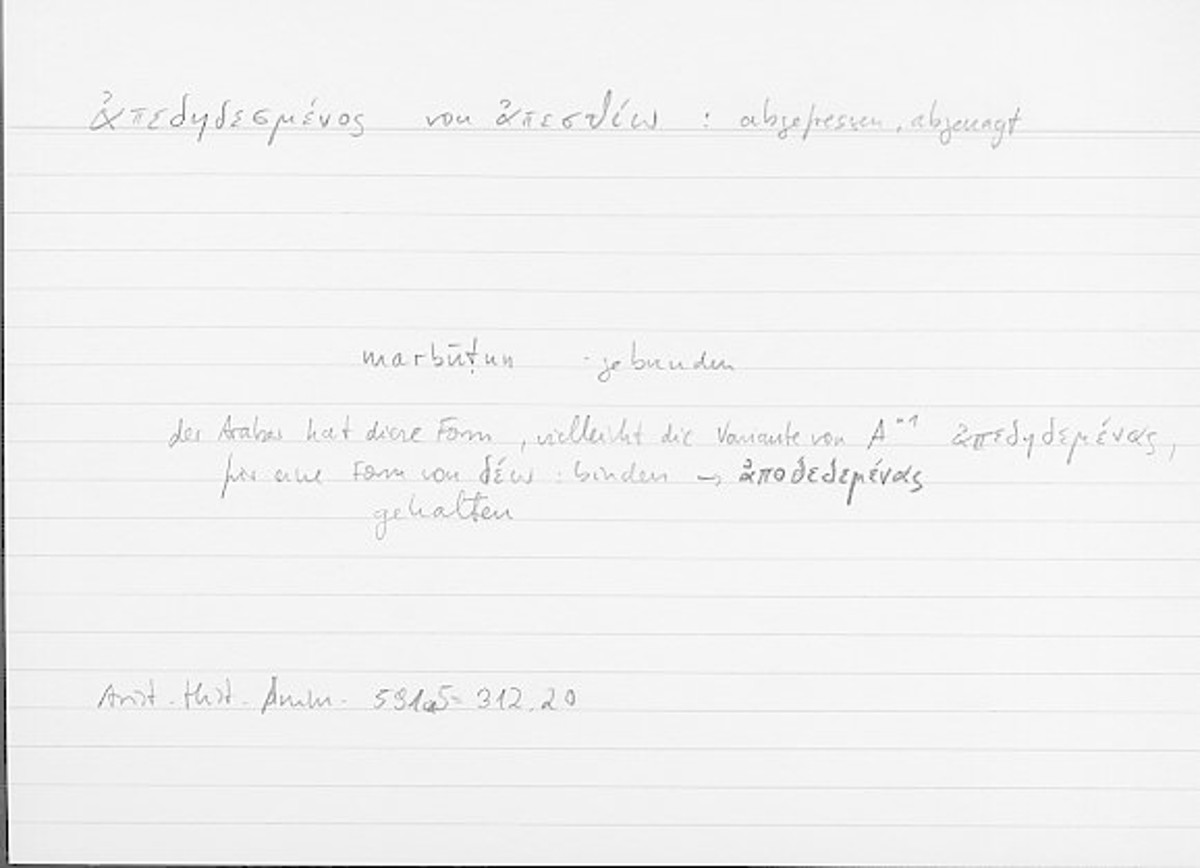 ἀπεδηδεσμένος von ἀπεσθίω : abgefressen, abgenagt
marbūṭun - gebunden
der Araber hat diese Form, vielleicht die Variante von A⁻¹ ἀπεδηδεμένας,
für eine Form von δέω : binden → ἀποδεδεμένας
gehalten
Arist. Hist. Anim. 591a5 = 312.20